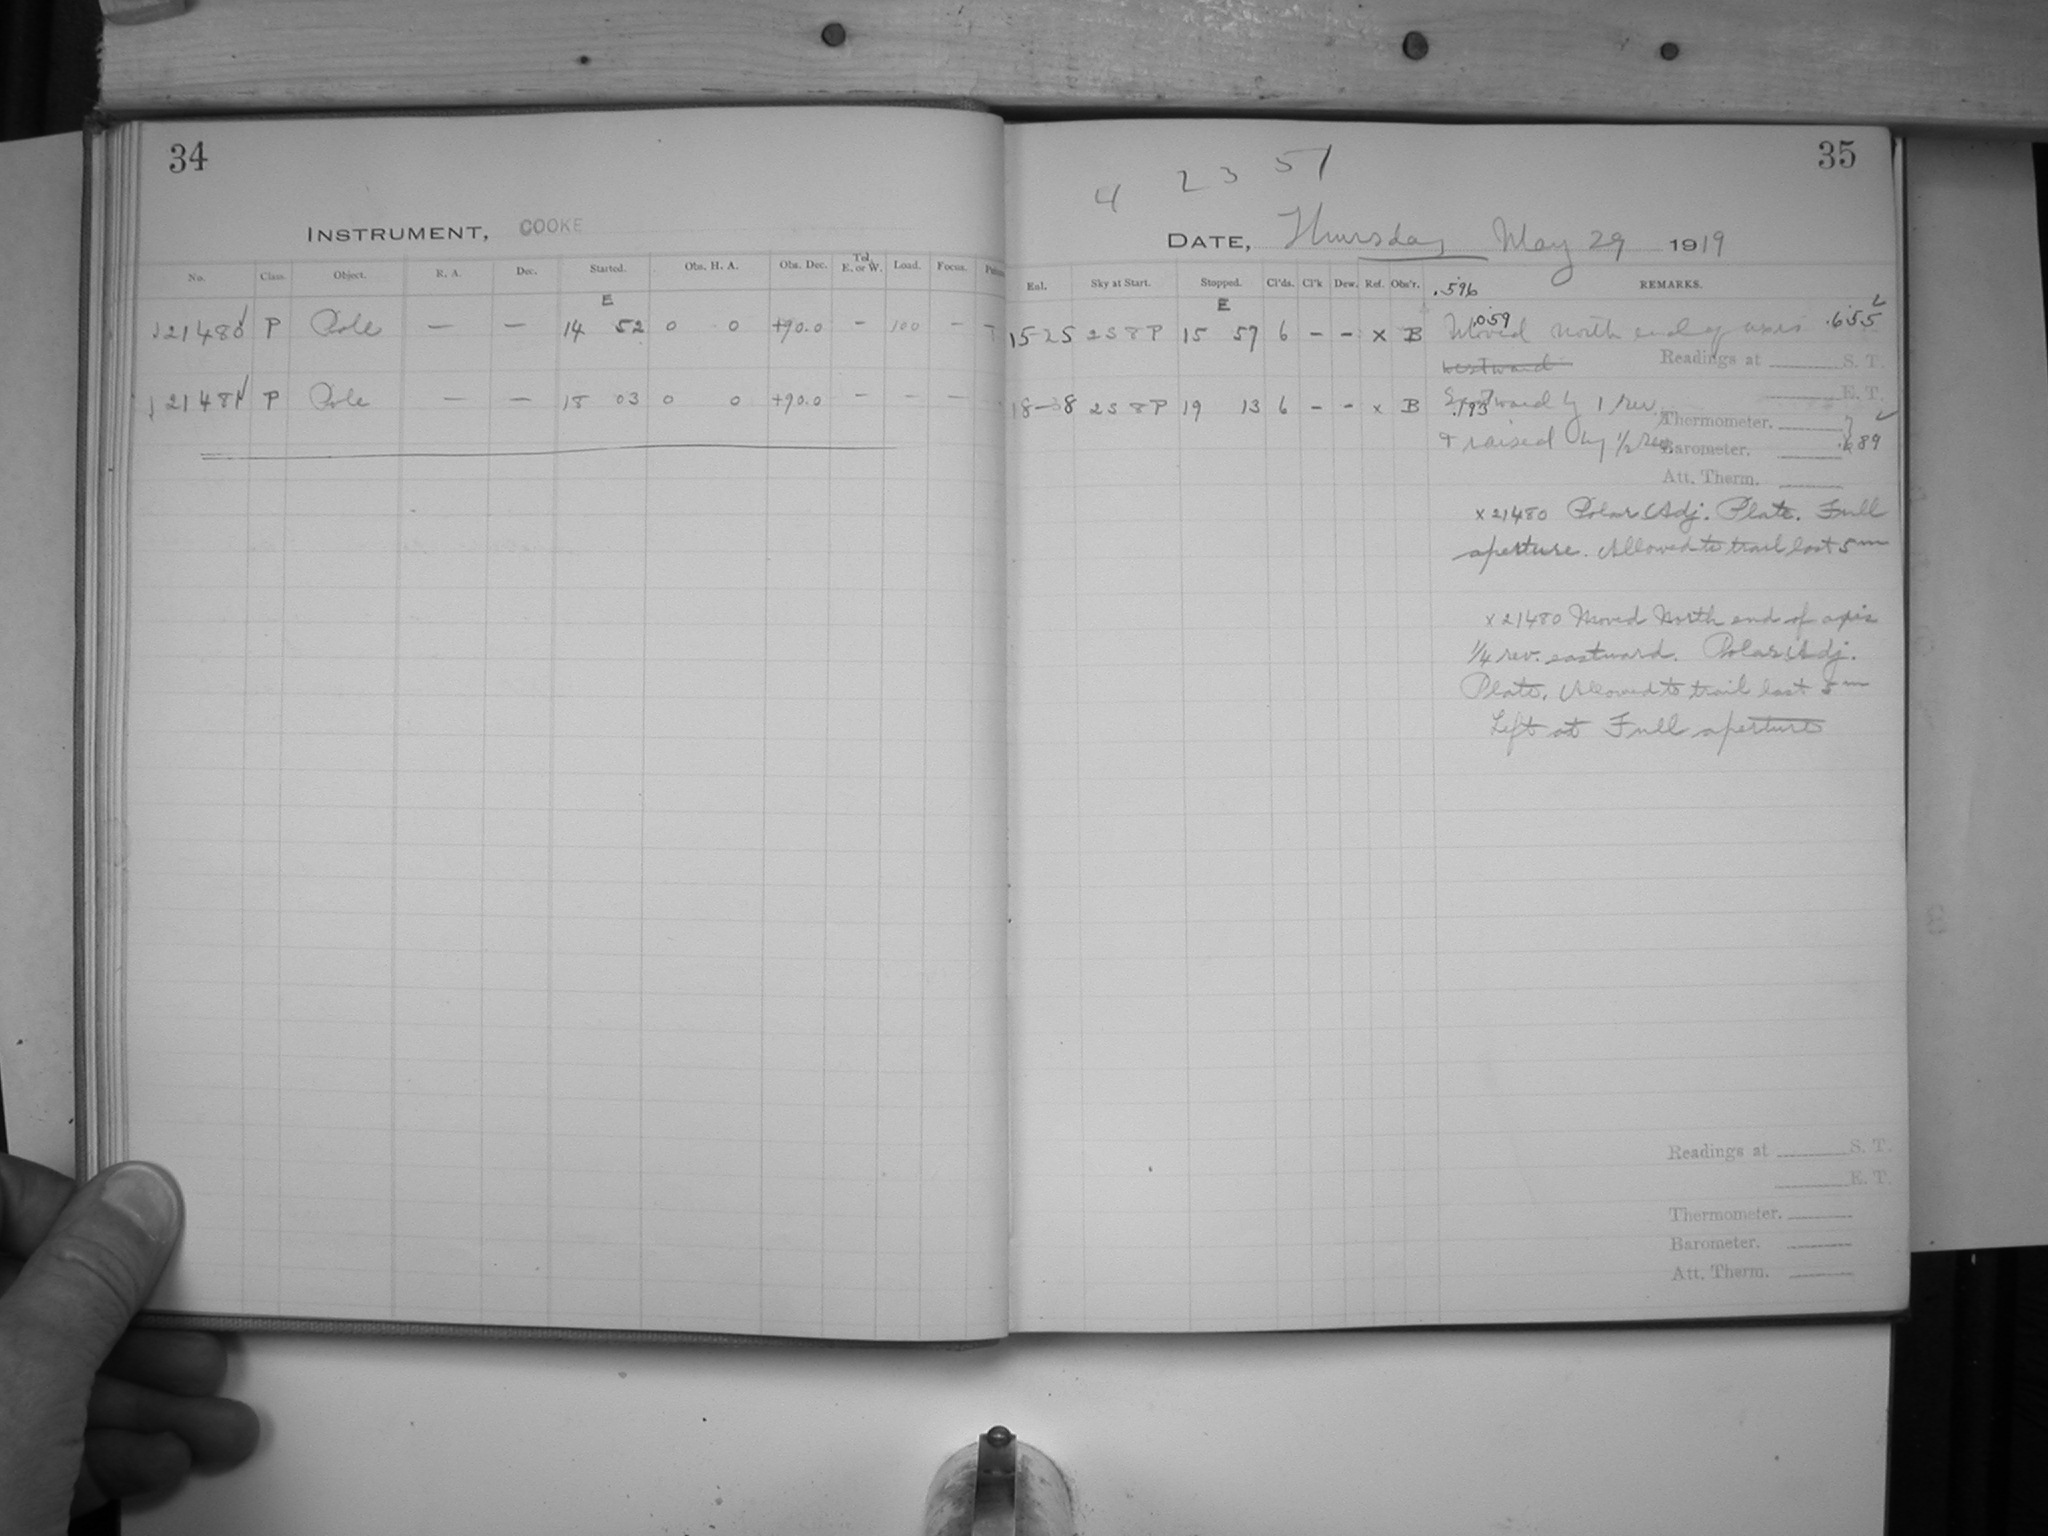 34
INSTRUMENT, COOKE
No. Class. Object. R. A. Dec. Started. Obs. H. A. Obs. Dec. Tel. E. or W. Load. Focus.
E
21480 P Pole — — 14 52 0 0 +90.0 – 100 –
21481 P Pole — — 18 03 0 0 +90.0 – – –
35
4 2 3 51
DATE, Thursday May 29 1919
Sky at Start. Stopped. Cl'ds. Cl'k Dew. Ref. Obs'r. .596 REMARKS.
E
15-25 2S8P 15 57 6 – – x B Moved north end of axis .655
.059
westward Readings at S. T.
E. T.
18-38 2S8P 19 13 6 – – x B Eastward by 1 rev.
.193 Thermometer.
& raised by 1/2 rev. Barometer. .689
Att. Therm.
x 21480 Polar Adj. Plate. Full
aperture. Allowed to trail last 5m
x 21480 Moved North end of axis
1/4 rev. eastward. Polar Adj.
Plate. Allowed to trail last 5m
Left at Full aperture
Readings at S. T.
E. T.
Thermometer.
Barometer.
Att. Therm.